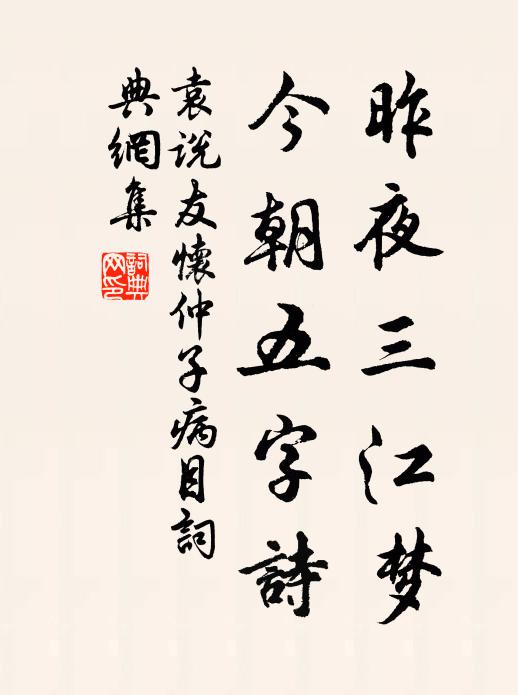 昨夜三江梦
今朝五字詩
袁说友懷仲子病目詞
典網集
詞典
网印